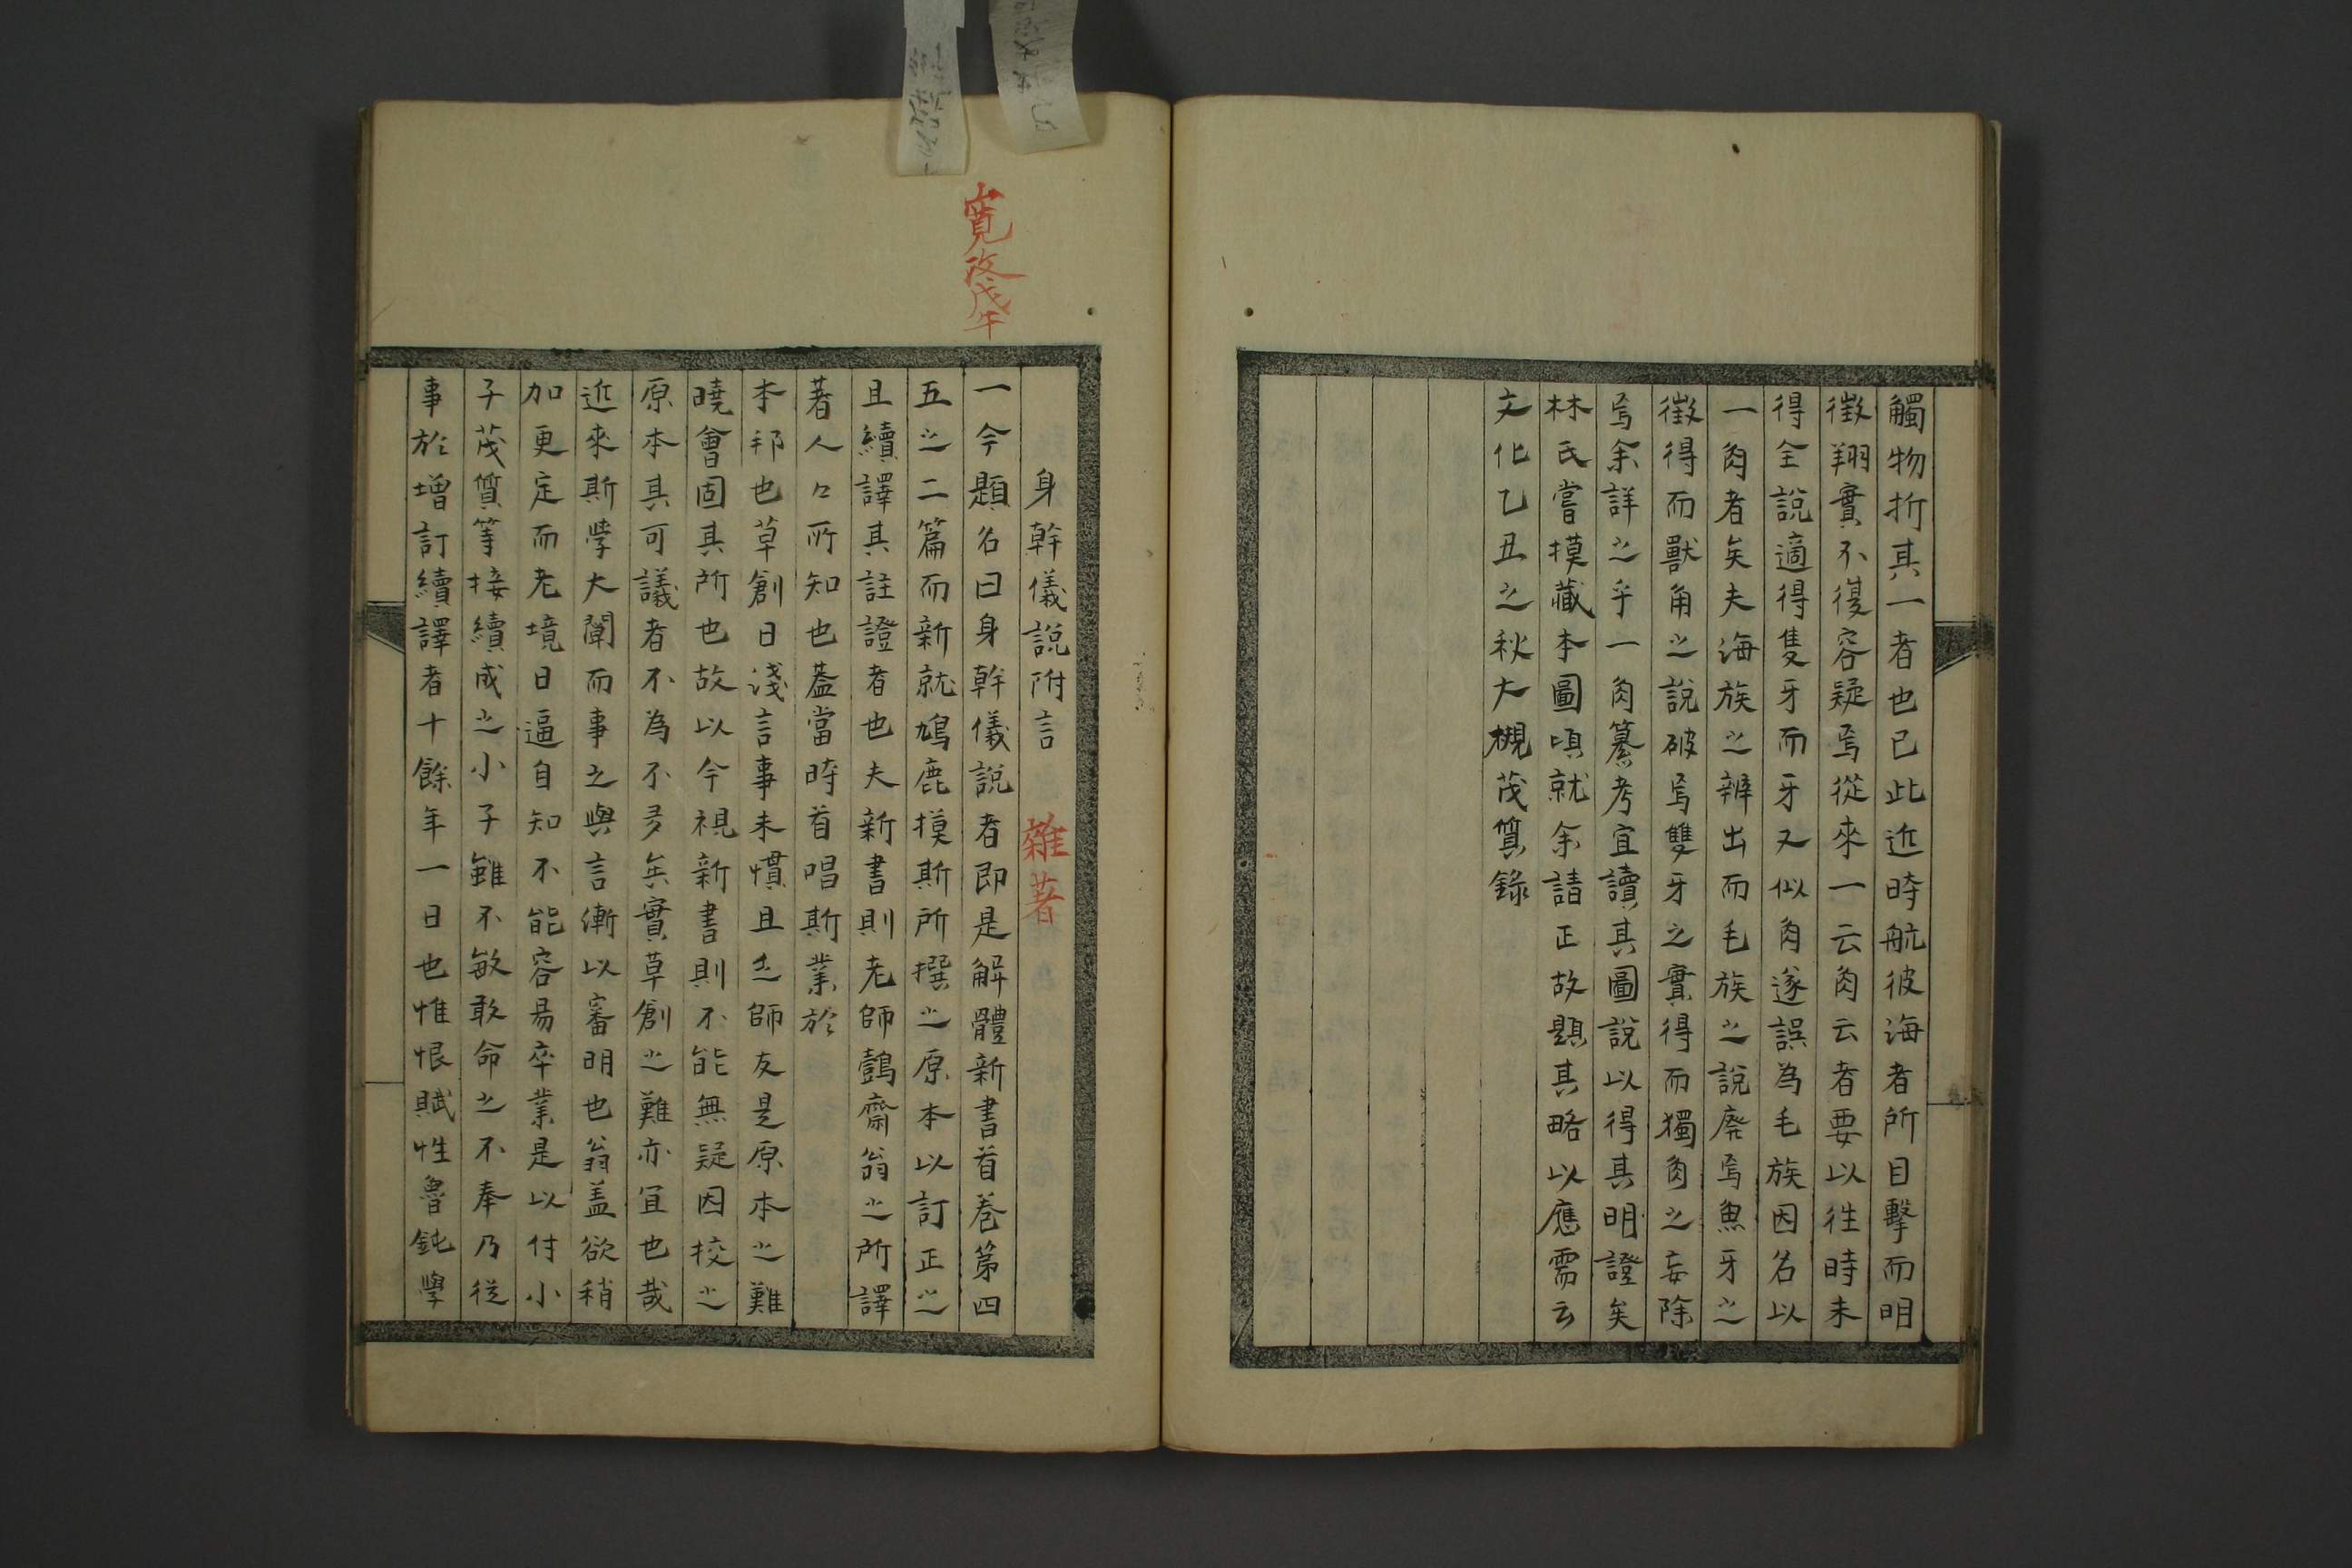 觸物折其一者也已此近時航彼海者所目擊而明
徵翔實不復容疑焉從來一云角云者要以往時未
得全說適得隻牙而牙又似角遂誤為毛族因名以
一角者矣夫海族之辨出而毛族之說廃焉魚牙之
徵得而獸角之說破焉雙牙之實得而獨角之妄除
焉余詳之乎一角纂考宜讀其圖說以得其明證矣
林氏嘗摸藏本圖頃就余請正故題其略以應需云
文化乙丑之秋大槻茂質錄
身幹儀說附言
雜著
寬政戊午
一今題名曰身幹儀說者即是解體新書首卷第四
五之二篇而新就鳩鹿摸斯所撰之原本以訂正之
且續譯其註證者也夫新書則老師鷧齋翁之所譯
著人々所知也蓋當時首唱斯業於
本邦也草創日淺言事未慣且乏師友是原本之難
曉會固其所也故以今視新書則不能無疑因挍之
原本其可議者不為不多矣實草創之難亦宜也哉
近來斯學大闡而事之與言漸以審明也翁盖欲稍
加更定而老境日逼自知不能容易卒業是以付小
子茂質等接續成之小子雖不敏敢命之不奉乃從
事於增訂續譯者十餘年一日也惟恨賦性魯鈍學